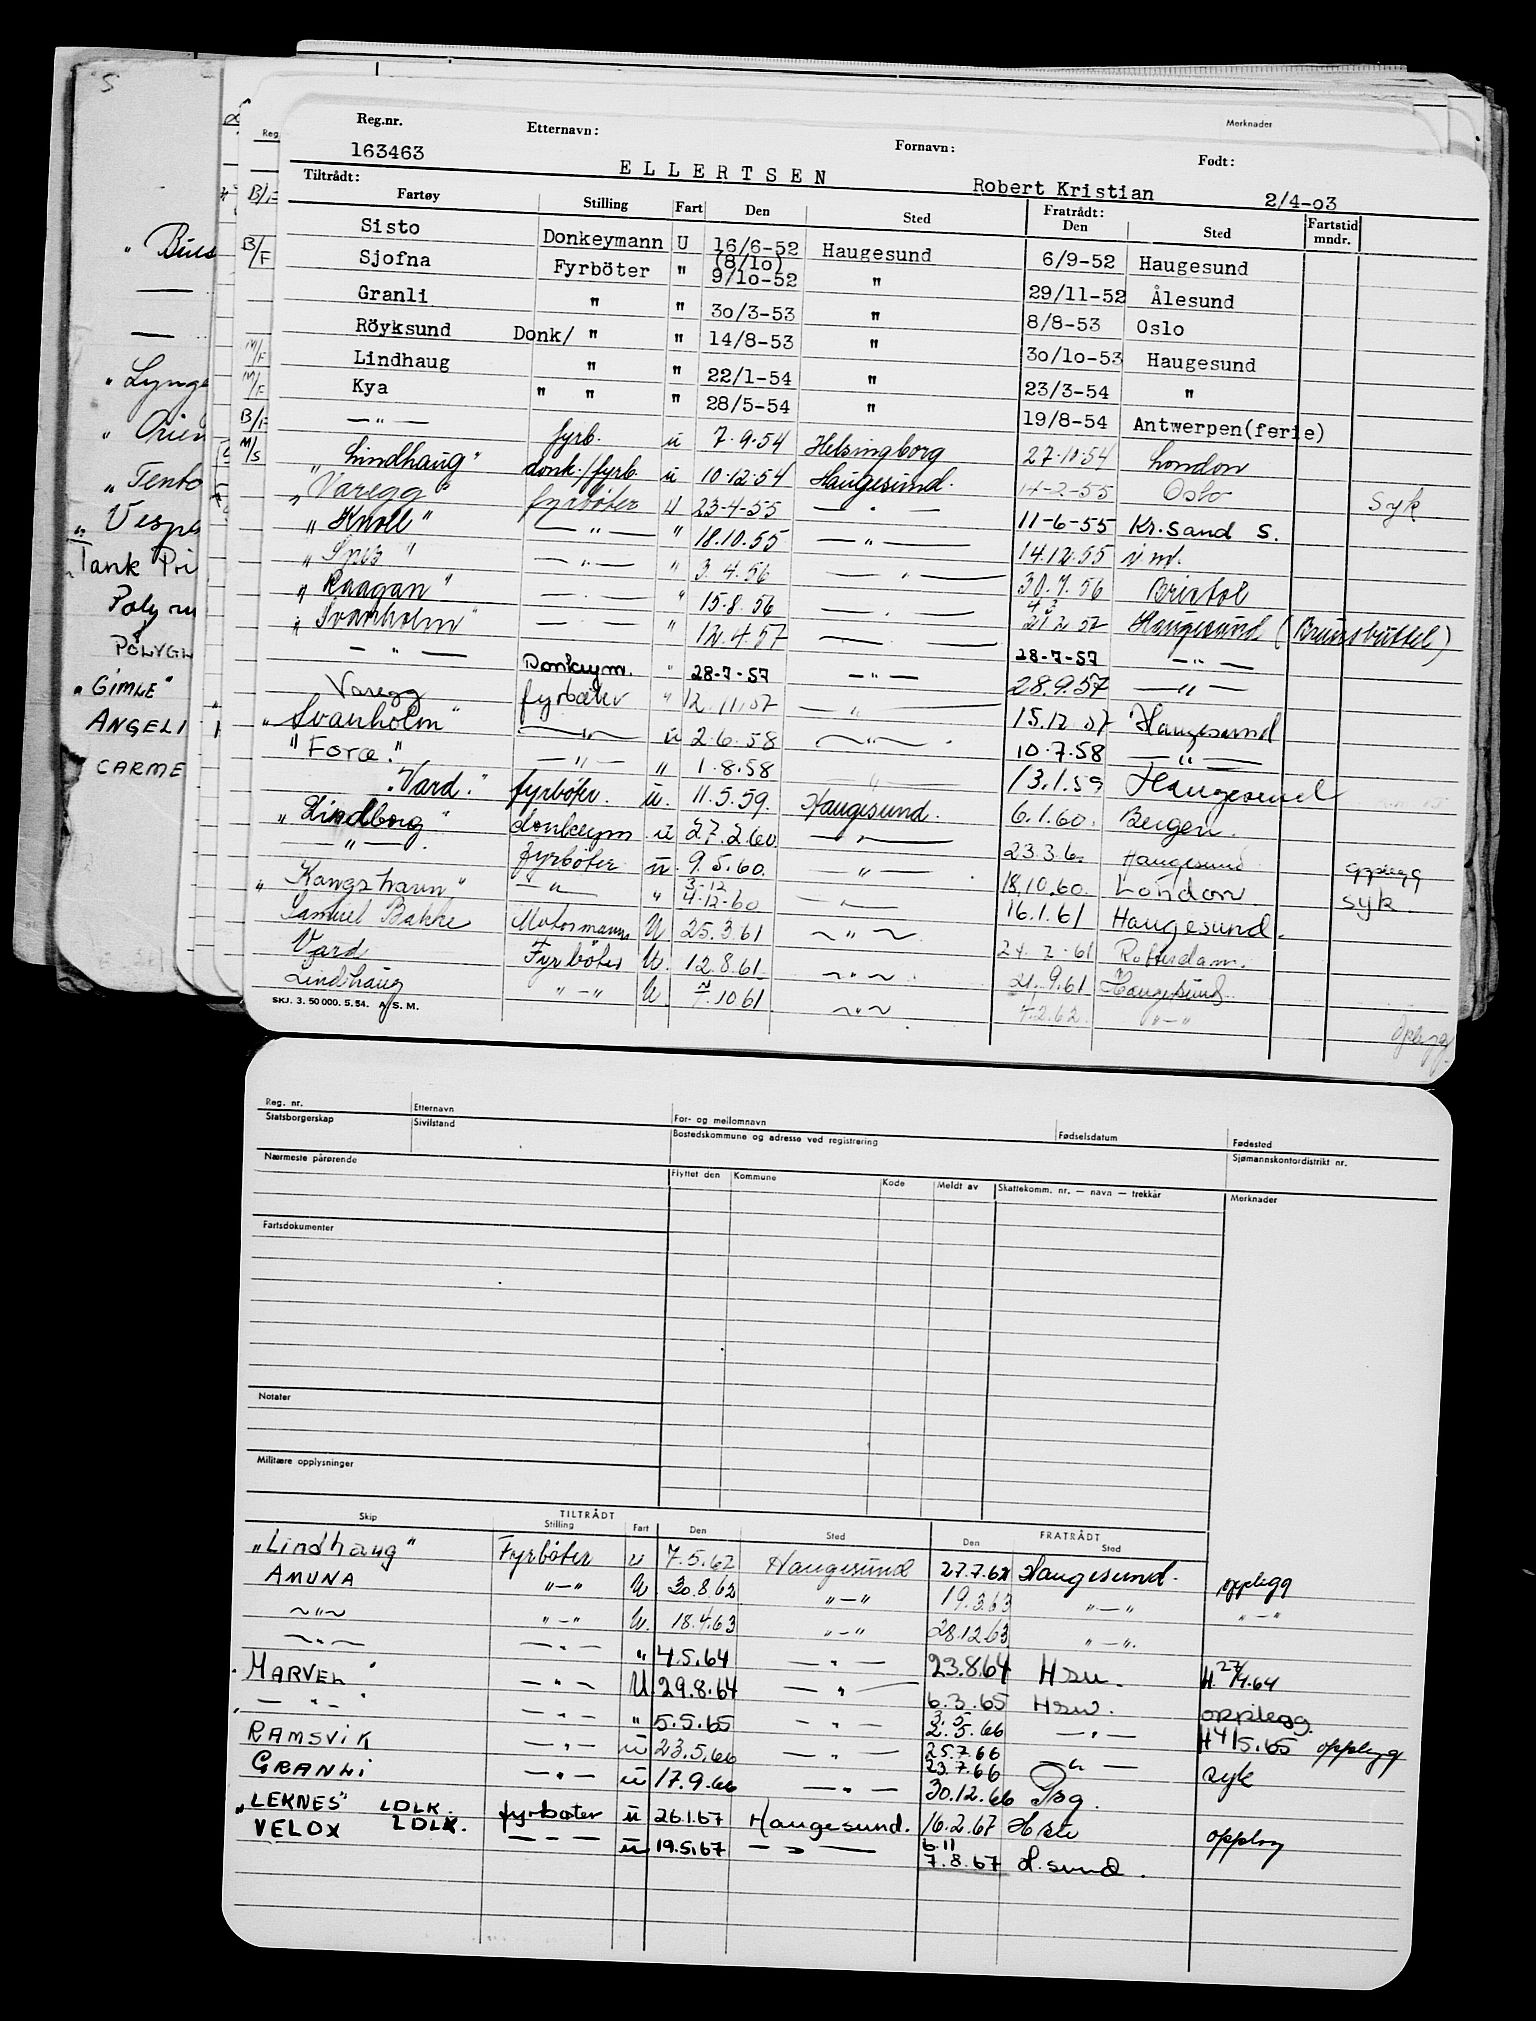 S
" Buss
" Lynge
" Orien
" Tento
" Vespa
Tank Pri
Polyru
POLYGL
"GIMLE"
ANGELI
CARME
Merknader
Reg.nr. Etternavn: Fornavn: Født:
163463 ELLERTSEN Robert Kristian 2/4-03
Tiltrådt: Fratrådt:
Fartøy Stilling Fart Den Sted Den Sted Fartstid mndr.
B/F Sisto Donkeymann U 16/6-52 Haugesund 6/9-52 Haugesund
B/F Sjofna Fyrböter " (8/10) 9/10-52 " 29/11-52 Ålesund
Granli " " 30/3-53 " 8/8-53 Oslo
Röyksund Donk/ " " 14/8-53 " 30/10-53 Haugesund
M/F Lindhaug " " 22/1-54 " 23/3-54 "
M/F Kya " " " 28/5-54 " 19/8-54 Antwerpen(ferie)
B/F — " — fyrb. u 7.9.54 Helsingborg 27.10.54 London
M/S "Lindhaug" donk./fyrb. u 10.12.54 Haugesund. 14-2-55 Oslo Syk
"Varegg" fyrbøter u 23-4-55 — " — 11-6-55 Kr.sand S.
"Knoll" — " — " 18.10.55 — " — 14.12.55
— " — " 3.4.56 — " — 30.7.56 Bristol
"Raagan" — " — " 15.8.56 — " — Haugesund (Brunsbüttel)
"Svanholm" — " — " 12.4.57 — 28-7-57 — " —
— " — Donkeym. " 28-7-57 — " — 28.9.57 — " —
Varegg fyrbøter " 12.11.57 — " — 15.12.57 Haugesund
"Svanholm" — " — u 2.6.58 — " — 10.7.58 — " —
"Force." — " — " 1.8.58 — " — 13.1.59 Haugesund
"Vard." fyrbøter. u. 11.5.59. Haugesund. 6.1.60. Bergen.
"Lindborg" donkeym u 27.2.60 — " — 23.3.6. Haugesund opplegg
— " —. fyrbøter u. 9.5.60. — " — 18.10.60. London. syk.
"Kongshavn" — " — " 3-12 4-12-60 — " — 16.1.61 Haugesund.
Samuel Bakke Motormann U 25.3.61 — " — 24.7.61 Rotterdam.
Vard Fyrbøter U. 12.8.61. — " — 21.9.61 Haugesund.
Lindhaug " — " U 7.10 61 — " — 7.2.62. " — " Opplegg
SKJ. 3. 50 000. 5. 54. A/S. M.
Reg. nr. Etternavn For- og mellomnavn Fødselsdatum Fødested
Statsborgerskap Sivilstand Bostedskommune og adresse ved registrering Sjømannskontordistrikt nr.
Nærmeste pårørende Flyttet den Kommune Kode Meldt av Skattekomm. nr. — navn — trekkår Merknader
Fartsdokumenter
Notater
Militære opplysninger
TILTRÅDT FRATRÅDT
Skip Stilling Fart Den Sted Den Sted
"Lindhaug" Fyrbøter u 7.5.62 Haugesund 27.7.62 Haugesund. opplegg
AMUNA " — " U 30.8.62 " — " 19.3.63 " — " " — "
~ " ~ " — " U. 18.4.63 " — " 28.12.63 " — ".
~ " ~ — " — " 4.5.64 — " — 23.8.64 Hsu. H. 27/4.64
"MARVEL" — " — U. 29.8.64 — " — 6.3.65 Hsu. opplegg.
— " — — " — " 5.5.65 — " — 3.5 2.5.66 — " — H 4/5.65 opplegg
RAMSVIK — " — u 23.5.66 — " — 25.7.66 23.7.66 — " — syk
GRANLI — " — u 17.9.66 — " — 30.12.66 Psg.
"LEKNES" LDLK. fyrbøter u 26.1.67 Haugesund. 16.2.67 opplag
VELOX LDLK. — " — u 19.5.67 — " — 6.11 7.8.67 H.sund.